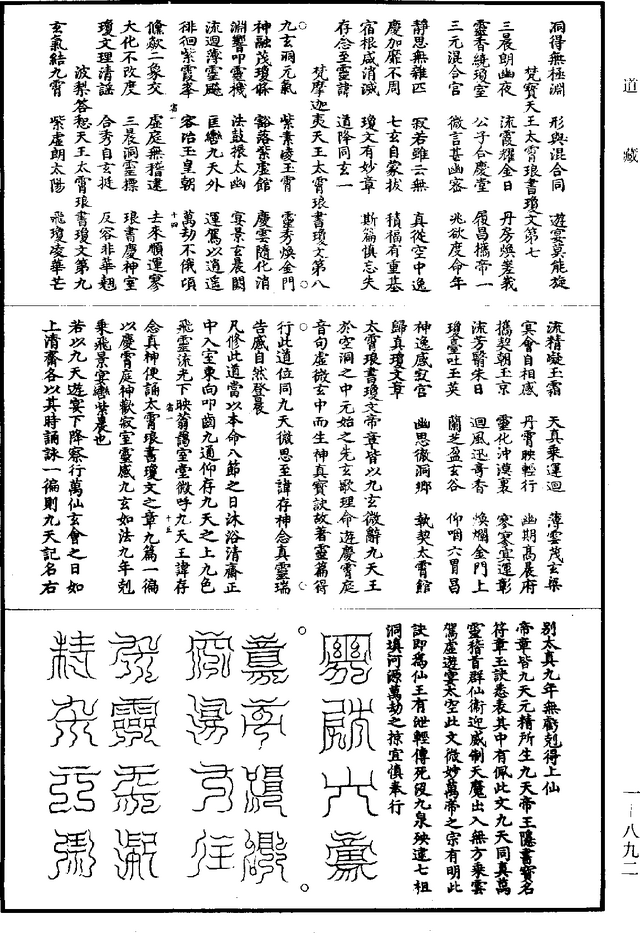 道
藏
洞得無極淵　形與混合同　遊宴莫能旋
梵寶天王太霄琅書瓊文第七
三晨朗幽夜　流霞耀金日　丹房煥嵳峩
靈香繞瓊室　公子合慶堂　履昌攜帝一
三元混合宮　微言甚幽密　兆欲度命年
靜思無雜匹　寂若雖云無　真從空中逸
慶加靡不周　七玄自蒙拔　積福有重基
宿根咸消滅　瓊文有妙章　斯篇慎忘失
存念至靈諱　道降同玄一
梵摩迦夷天王太霄琅書瓊文第八
九玄洞元氣　紫素凌玉霄　靈秀煥金門
神融茂瓊條　豁落紫虛館　慶雲隨化消
淵響叩靈機　法鼓振太幽　宴景玄晨闕
流迴薄靈飈　匡轡九天外　運駕以逍遙
徘徊紫霞峯　容冶玉皇朝　萬劫不俄頃
省一　十四
儵歘二象交　虛庭無稽違　去來順運寥
大化不改度　三晨洞靈標　琅書慶神室
瓊文理清謠　合秀自玄挺　反容非華翹
波梨答惒天王太霄琅書瓊文第九
玄氣結九霄　紫虛朗太陽　飛瓊凌華芒
流精凝玉霜　天真乘運迴　薄雲茂玄梁
冥會自相感　丹霄映輕行　幽期高晨府
攜契朝玉京　靈化沖漠裏　寥寥寘運彰
流芳翳朱日　迴風迅奇香　煥爛金門上
瓊臺吐玉英　蘭芝盈玄谷　仰咽六胃昌
神逸感寂宮　幽思徹洞鄉　執契太霄館
歸真瓊文章
太霄琅書瓊文帝章皆以九玄微辭九天王
於空洞之中元始之先玄歌理命遊慶霄庭
音句虛微玄中而生神真寶訣故著靈篇得
行此道位同九天微思至諱存神念真靈瑞
告感自然登晨
凡修此道當以本命八節之日沐浴清齋正
中入室東向叩齒九通仰存九天之上九色
飛靈流光下映蓊藹室堂微呼九天王諱存
省一　十五
念真神便誦太霄琅書瓊文之章九篇一徧
以慶霄庭神歡寂室靈感九玄如法九年剋
乘飛景宴轡紫晨也
若以九天遊宴下降察行萬仙玄會之日如
上清齋各以其時誦詠一徧則九天記名右
別太真九年無虧剋得上仙
帝章皆九天元精所生九天帝王隱書寶名
符章玉訣悉表其中有佩此文九天同真萬
靈稽首群仙衛迎威制天魔出入無方乘雲
駕虛遊宴太空此文微妙萬帝之宗有明此
訣即為仙王有泄輕傳死役九泉殃逮七祖
洞填河源萬劫之掠宜慎奉行
一—八九二